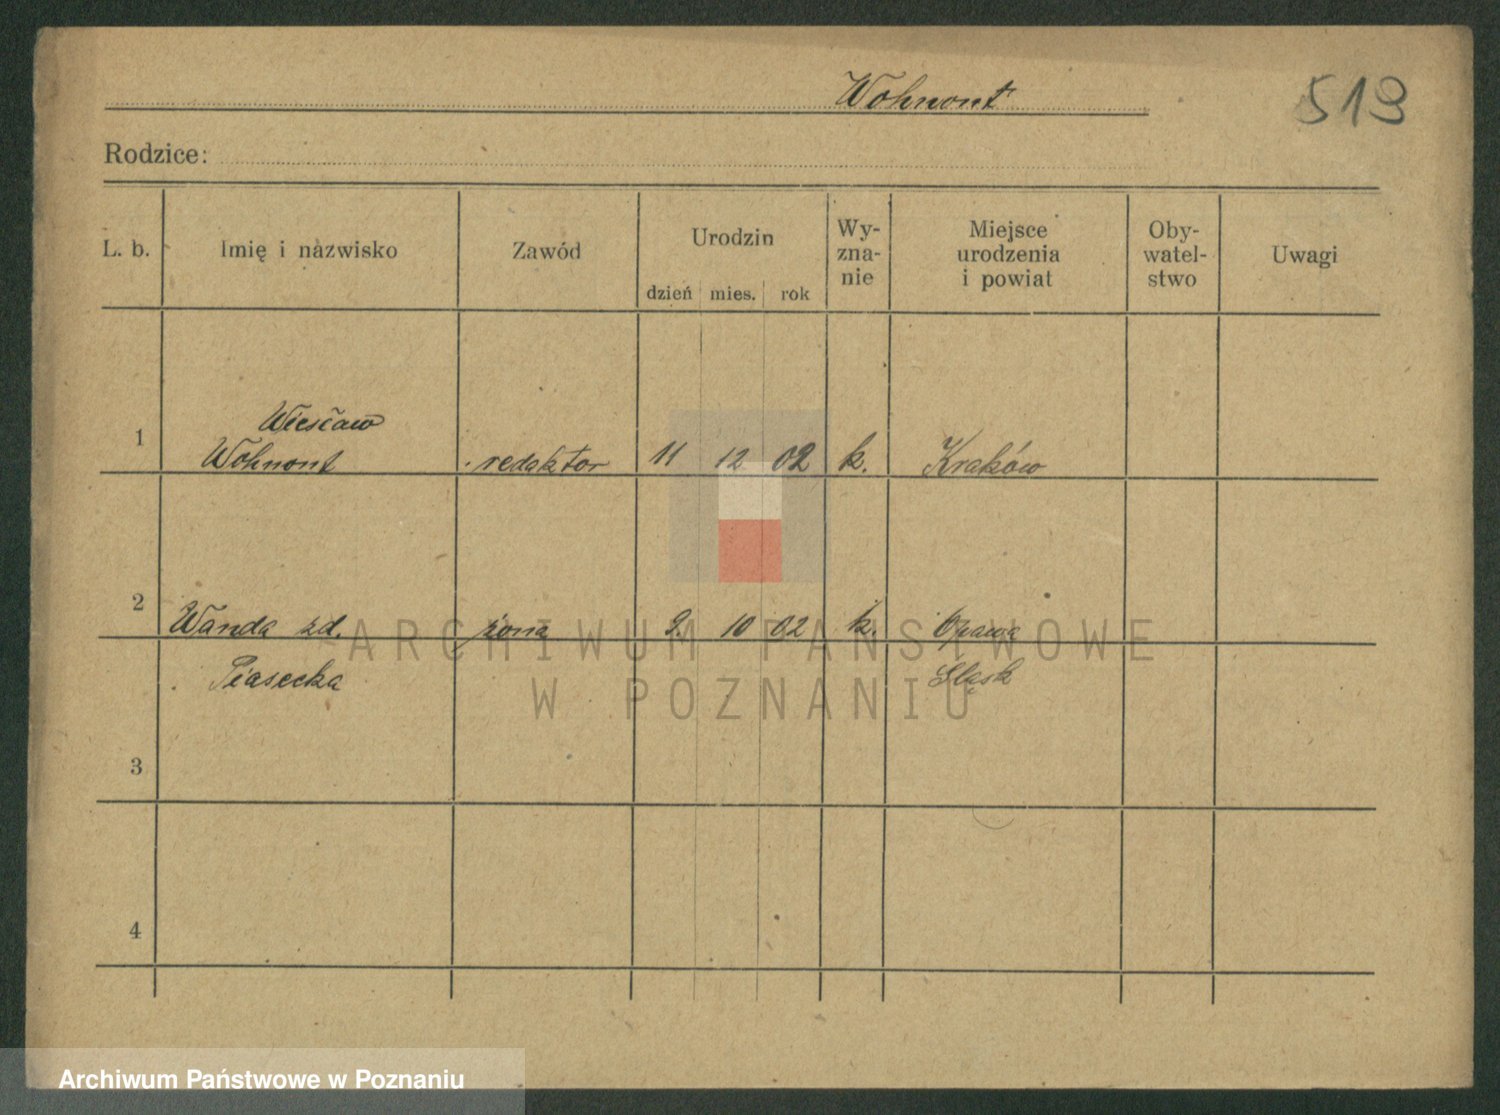 Wohnout
513
Rodzice:
L. b.
Imię i nazwisko
Zawód
Urodzin
dzień mies. rok
Wy-
zna-
nie
Miejsce
urodzenia
i powiat
Oby-
watel-
stwo
Uwagi
Wiesław
1 Wohnout redaktor 11 12 02 k. Kraków
2 Wanda zd. żona 9. 10 02 k. Opawa
Piasecka Śląsk
3
4
ARCHIWUM PAŃSTWOWE
W POZNANIU
Archiwum Państwowe w Poznaniu